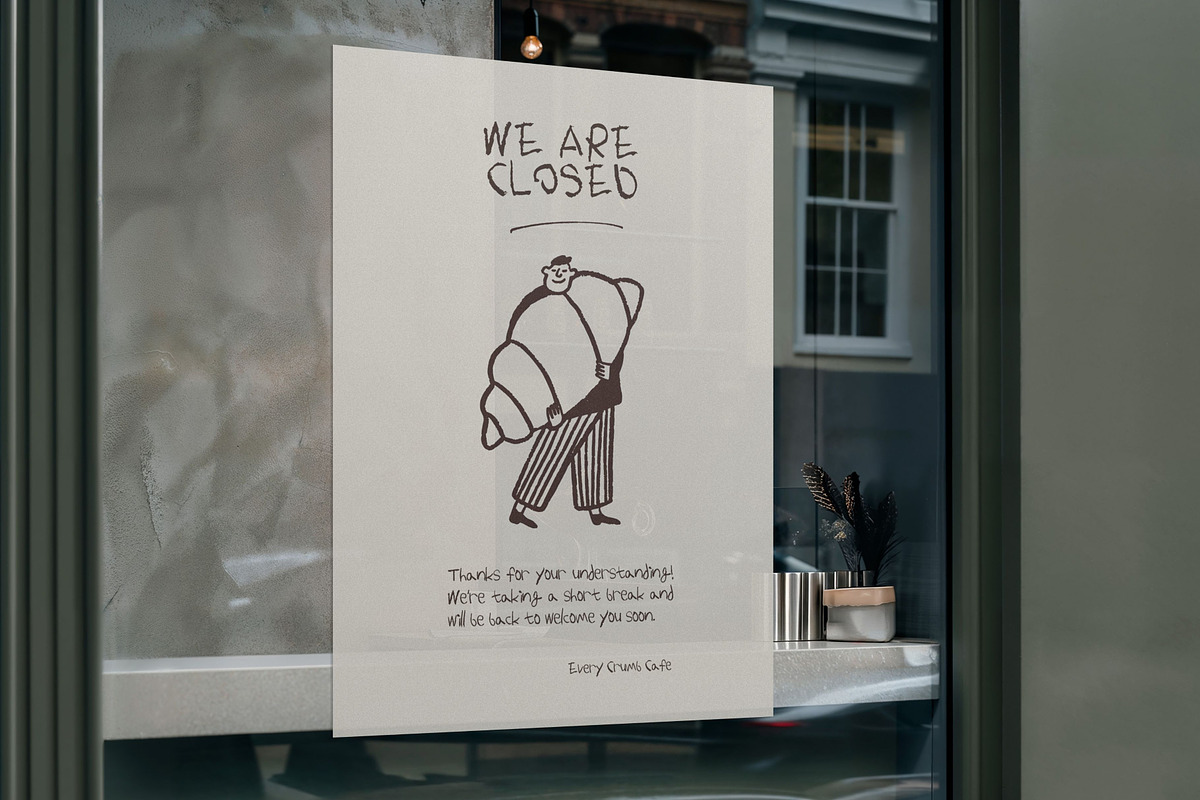 WE ARE
CLOSED
Thanks for your understanding!
We're taking a short break and
will be back to welcome you soon.
Every Crumb Cafe